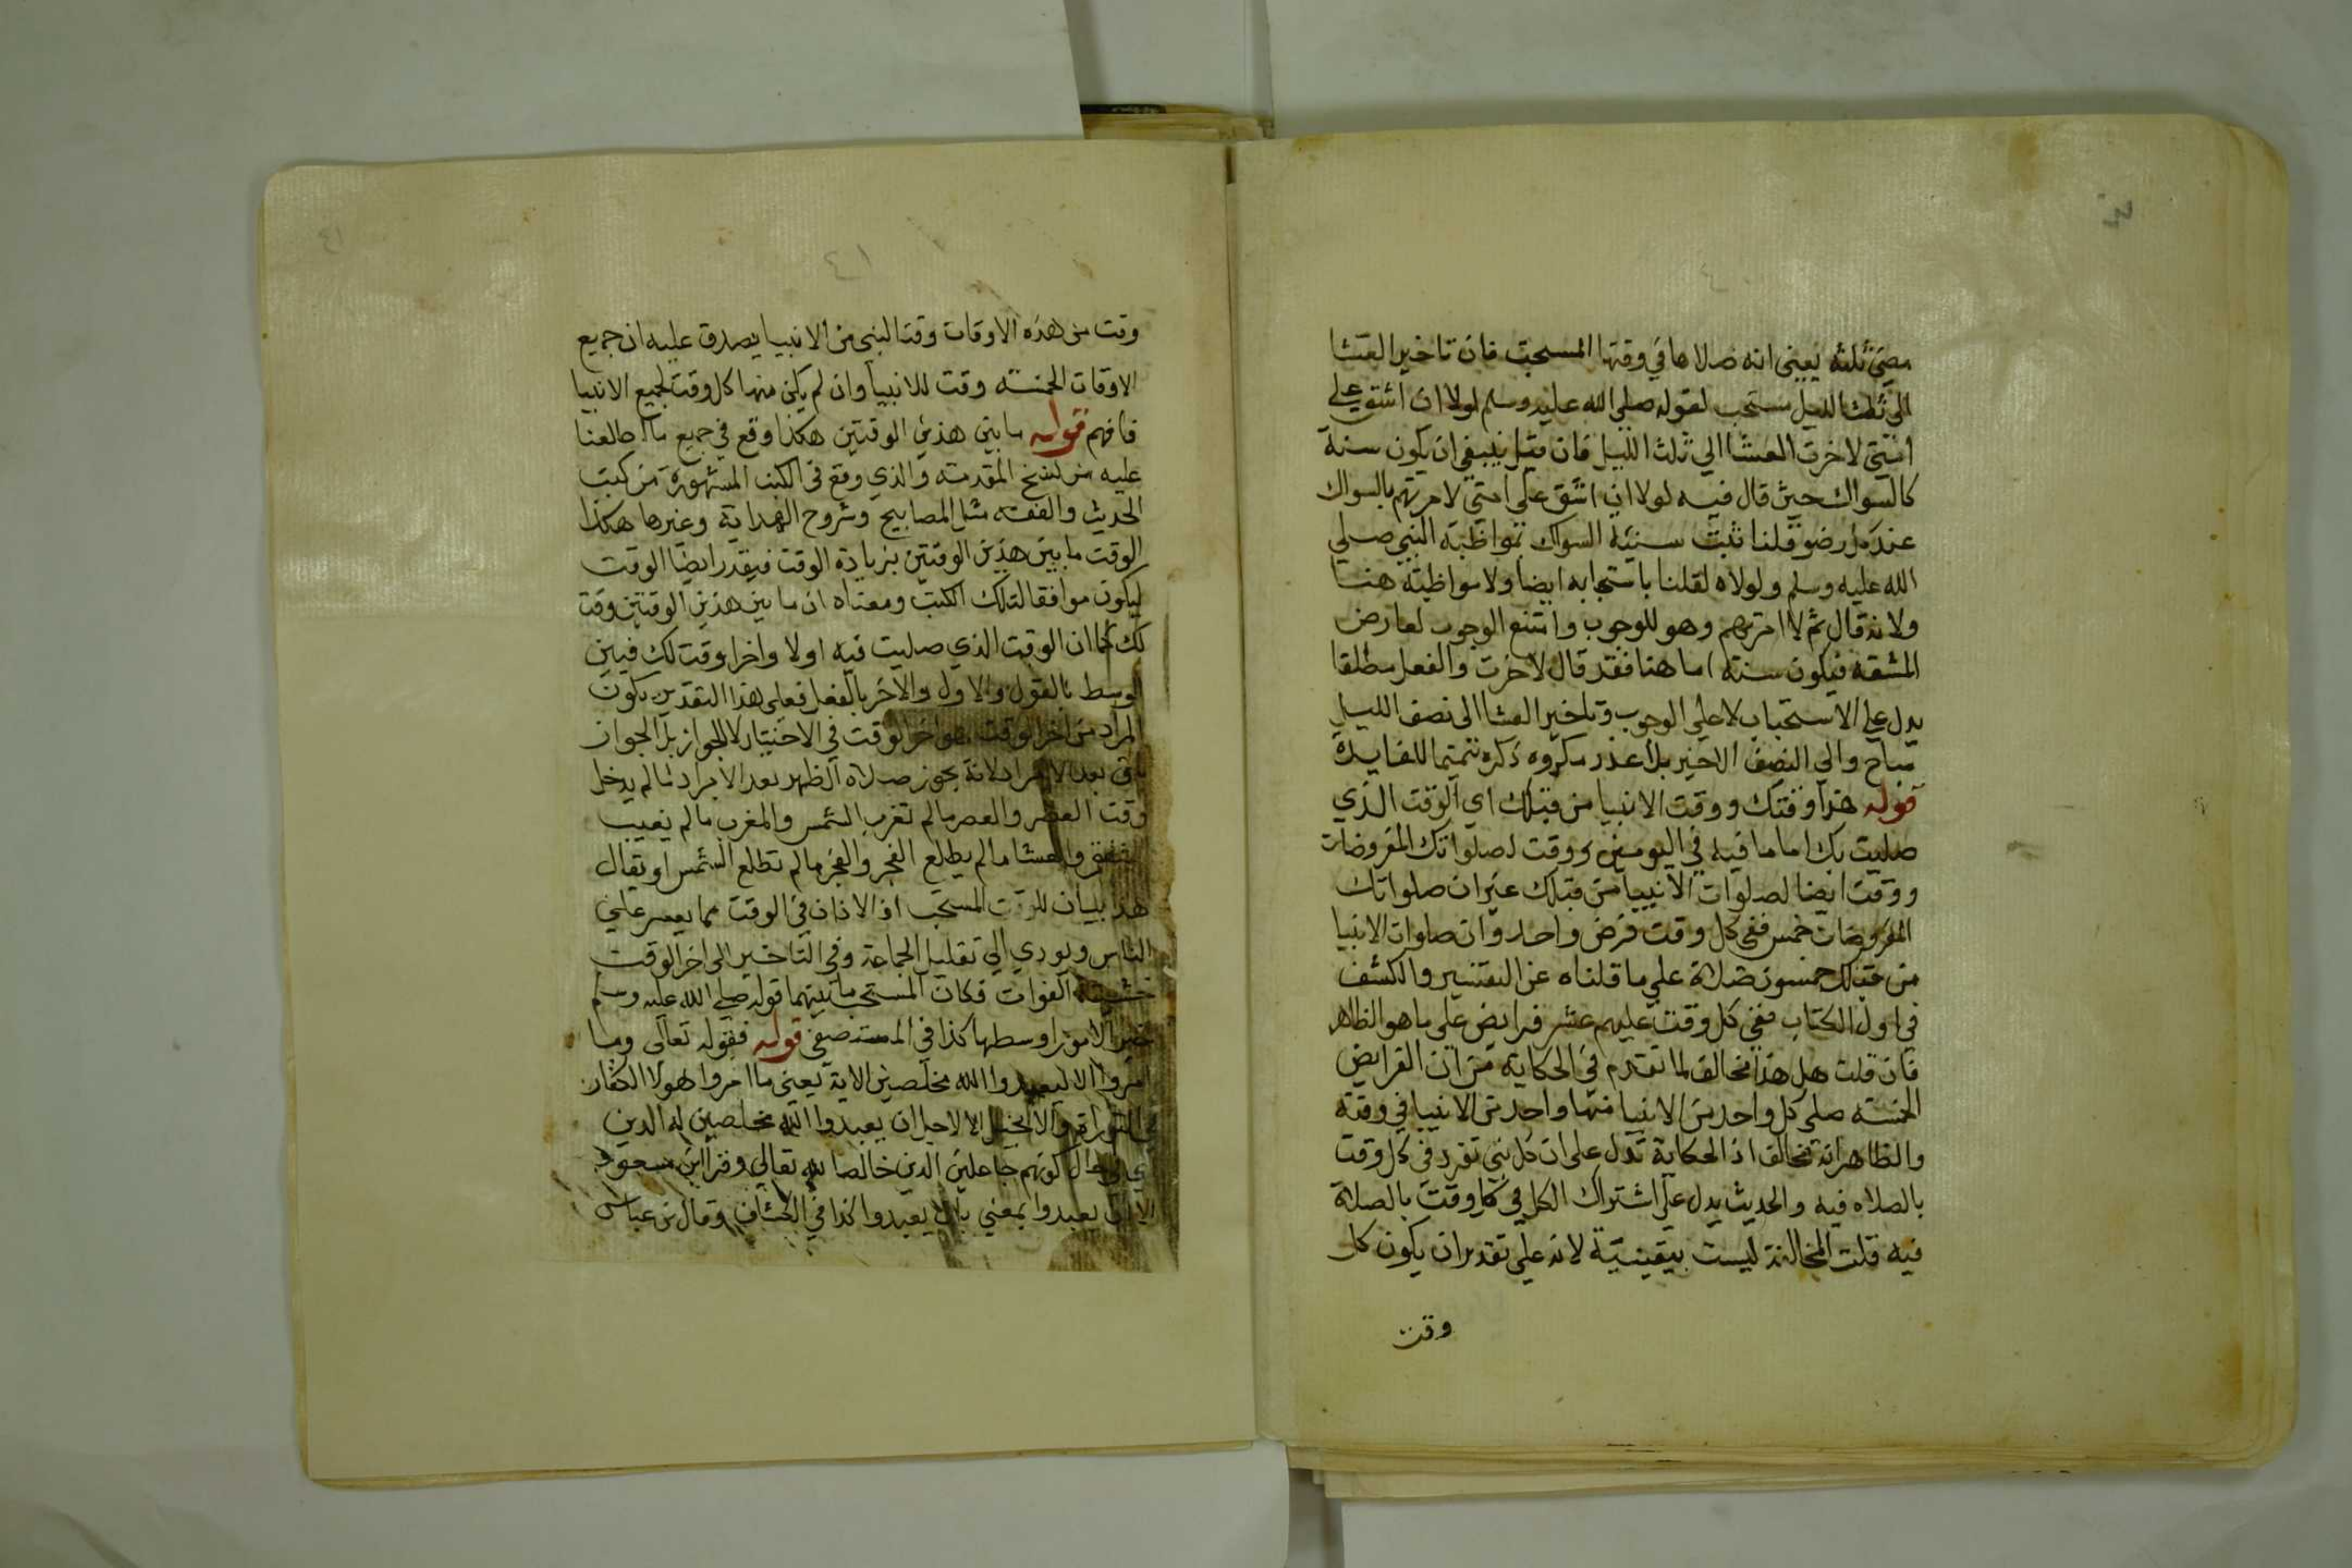 مضى ثلثه يعنى انه صلاها في وقتها المستحب فان تاخير العشا
الى ثلث الليل مستحب لقوله صلى الله عليه وسلم لولا ان اشق على
امتي لاخرت العشا الي ثلث الليل فان قيل ينبغي ان يكون سنة
كالسواك حيث قال فيه لولا ان اشق على امتي لامرتهم بالسواك
عند كل وضو قلنا ثبت سنية السواك بمواظبة النبي صلي
الله عليه وسلم ولولاه لقلنا باستحبابه ايضا ولا مواظبة هنا
ولانه قال ثم لامرتهم وهو للوجوب وامتنع الوجوب لعارض
المشقة فيكون سنة اما هنا فقد قال لاخرت والفعل مطلقا
يدل علي الاستحباب لا علي الوجوب وتاخير العشا الى نصف الليل
مباح والي النصف الاخير بلا عذر مكروه ذكره تتميما للفايدة
قوله هذا وقتك ووقت الانبيا من قبلك اي الوقت الذي
صليت بك اماما فيه في اليومين وقت لصلواتك المفروضات
ووقت ايضا لصلوات الانبيا من قبلك غير ان صلواتك
المفروضات خمس ففي كل وقت فرض واحد وان صلوات الانبيا
من قبلك خمسون صلاة علي ما قلناه عن التفسير والكشف
في اول الكتاب ففي كل وقت عليهم عشر فرايض على ما هو الظاهر
فان قلت هل هذا مخالف لما تقدم في الحكاية من ان الفرايض
الخمسة صلى كل واحد من الانبيا منها واحد من الانبيا في وقته
والظاهر انه مخالف اذ الحكاية تدل على ان كل نبي تفرد في كل وقت
بالصلاه فيه والحديث يدل علي اشتراك الكل في كل وقت بالصلاة
فيه قلت المخالفة ليست بيقينية لانه علي تقدير ان يكون كل
وقت
وقت من هذه الاوقات وقتا لنبى من الانبيا يصدق عليه ان جميع
الاوقات الخمسة وقت للانبيا وان لم يكن منها كل وقت لجميع الانبيا
فافهم قوله ما بين هذين الوقتين هكذا وقع في جميع ما اطلعنا
عليه من نسخ المقدمة والذي وقع في الكتب المشهورة من كتب
الحديث والفقه مثل المصابيح وشروح الهداية وغيرها هكذا
الوقت ما بين هذين الوقتين بزيادة الوقت فيقدر ايضا الوقت
ليكون موافقا لتلك الكتب ومعناه ان ما بين هذين الوقتين وقت
لك كما ان الوقت الذي صليت فيه اولا واخرا وقت لك فبين
الوسط بالقول والاول والاخر بالفعل فعلى هذا التقدير يكون
المراد من اخر الوقت هو اخر الوقت في الاختيار لا الجواز بل الجواز
باق بعد الابراد لانه يجوز صلاة الظهر بعد الابراد لما لم يدخل
وقت العصر والعصر ما لم تغرب الشمس والمغرب ما لم يغيب
الشفق والعشا ما لم يطلع الفجر والفجر ما لم تطلع الشمس او يقال
هذا بيان للوقت المستحب اذ الاذان في الوقت مما يعسر علي
الناس ويودي الي تقليل الجماعة وفي التاخير الى اخر الوقت
خشية الفوات فكان المستحب ما بينهما قوله صلى الله عليه وسلم
خير الامور اوسطها كذا في المستصفى قوله فقوله تعالى وما
امروا الا ليعبدوا الله مخلصين الاية يعني ما امروا هولا الكفار
في التوراة والانجيل الا لاجل ان يعبدوا الله مخلصين له الدين
اي في حال كونهم جاعلين الدين خالصا لله تعالي وقرا ابن مسعود
الا ان يعبدوا بمعني بان يعبدوا كذا في الكشاف وقال ابن عباس